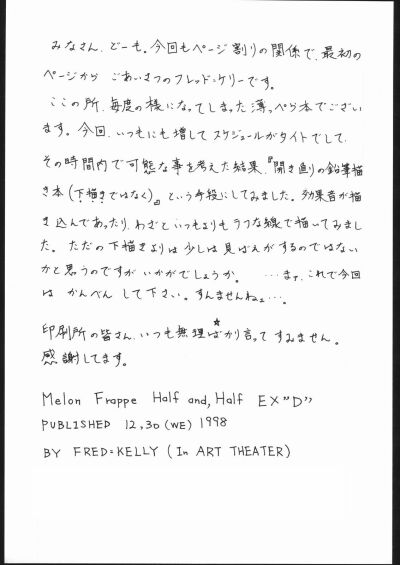 みなさん、どーも。今回もページ割りの関係で、最初の
ページから ごあいさつのフレッド=ケリーです。
ここの所、毎度の様になってしまった薄っぺら本でござい
ます。今回、いつもにも増してスケジュールがタイトでして、
その時間内で可能な事を考えた結果、『開き直りの鉛筆描
き本（下描きではなく）』という手段にしてみました。効果音が描
き込んであったり、わざといつもよりもラフな線で描いてみまし
た。ただの下描きよりは少しは見ばえがするのではない
かと思うのですがいかがでしょうか。 …ま、これで今回
は かんべん して下さい。すんませんねェ…。
印刷所の皆さん、いつも無理ばかり言って すみません。
感謝してます。
Melon Frappe Half and, Half EX"D"
PUBLISHED 12,30 (WE) 1998
BY FRED=KELLY (In ART THEATER)